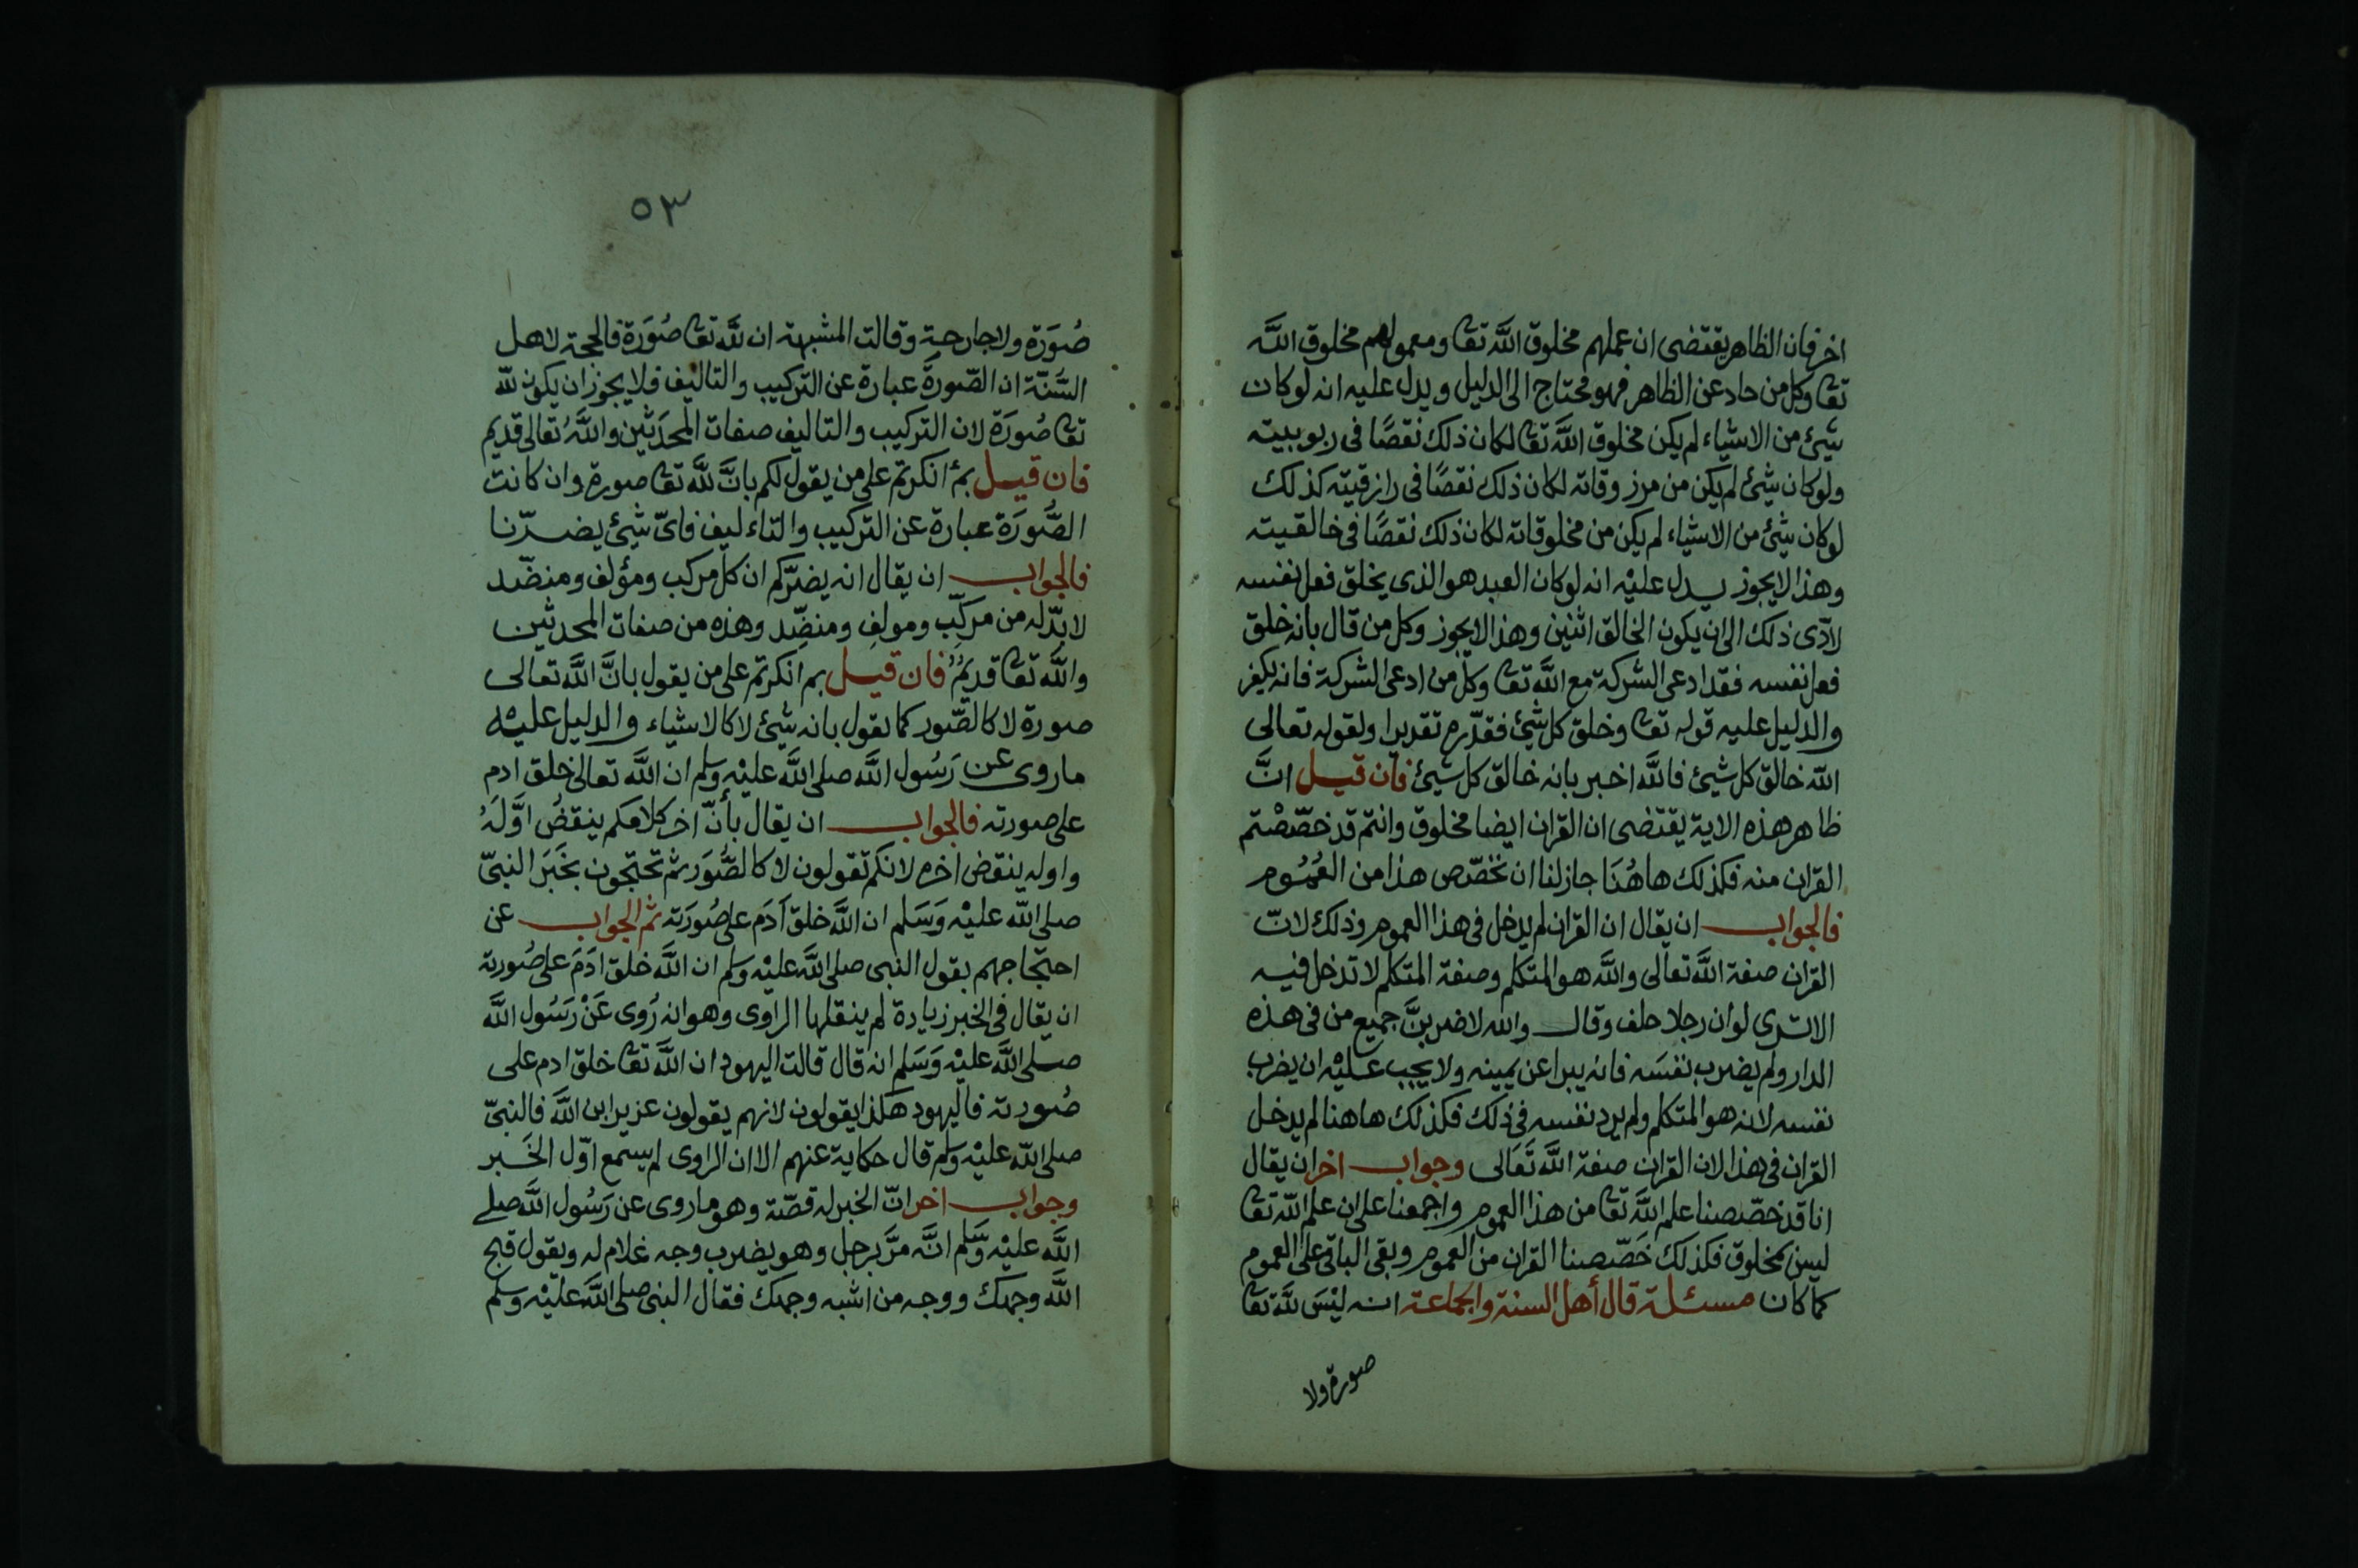 اخر فان الظاهر يقتضى ان عملهم مخلوق اللَّه تعا ومعمولهم مخلوق اللَّه
تعا وكل من حاد عن الظاهر فهو محتاج الى الدليل ويدل عليه انه لو كان
شيئ من الاشياء لم يكن مخلوق اللَّه تعا لكان ذلك نقصًا فى ربوبيته
ولو كان شيئ لم يكن من مرزوقاته لكان ذلك نقصًا فى رازقيته كذلك
لو كان شيئ من الاشياء لم يكن من مخلوقاته لكان ذلك نقصًا فى خالقيته
وهذا لا يجوز يدل عليْه انه لو كان العبد هو الذى يخلق فعل نفسه
لادّى ذلك الى ان يكون الخالق اثنين وهذا لا يجوز وكل من قال بانه خلق
فعل نفسه فقد ادعى الشركة مع اللَّه تعا وكل من ادعى الشركة فانه يكفر
والدليل عليه قوله تعا وخلق كل شيئ فقدّره تقديرا ولقوله تعالى
اللّه خالق كل شيئ فاللَّه اخبر بانه خالق كل شيئ فان قيل انَّ
ظاهر هذه الاية يقتضى ان القران ايضا مخلوق وانتم قد خصّصْتم
القران منه فكذلك هاهُنَا جاز لنا ان نخصّص هذا من العُمُوم
فالجواب ان يقال ان القران لم يدخل فى هذا العموم وذلك لانّ
القران صفة اللَّه تعالى واللَّه هو المتكلم وصفة المتكلم لا تدخل فيه
الا ترى لو ان رجلا حلف وقال واللّه لاضربنَّ جميع من فى هذه
الدار ولم يضرب نفسَه فانه يبرا عن يمينه ولا يجب عليْه ان يضرب
نفسه لانه هو المتكلم ولم يرد نفسه فى ذلك فكذلك هاهنا لم يدخل
القران فى هذا لان القران صفة اللَّه تَعَالى وجواب اخر ان يقال
انا قد خصّصنا علم اللَّه تعا من هذا العموم واجمعنا على ان علم اللّه تعا
ليس بمخلوق فكذلك خَصّصنا القران من العموم وبقى الباقى على العموم
كما كان مسئلة قال أهل السنة والجماعة انه ليْسَ للَّه تعا
صورة ولا
٥٣
صُورَة ولا جارحةٍ وقالت المشبهة ان للَّه تعا صُورَة فالحجة لاهل
السُّنّة ان الصّورةَ عبارة عن التركيب والتاليف فلا يجوز ان يكون للّه
تعا صُورَة لان التركيب والتاليف صفات المحدَثين واللَّهُ تعالى قديم
فان قيل بمَ انكرتم على من يقول لكم بانَّ للَّه تعا صورة وان كانت
الصُّورَة عبارة عن التركيب والتاءليف فاىّ شيئ يضرّنا
فالجواب ان يقال انه يضرّكم ان كل مركب ومؤلف ومنضّد
لا بدّ له من مركِّب ومولفِ ومنضِّد وهذه من صفات المحدثين
واللَّه تعا قديمٌ فان قيل بم انكرتم على من يقول بانَّ اللَّه تعالى
صورة لا كالصّور كما نقول بانه شيئ لا كالاشياء والدليل عليْه
ما روى عن رَسُول اللَّه صلى اللَّه عليْه وسلم ان اللَّه تعالى خلق ادم
على صورته فالجواب ان يقال بأنّ اخر كلامكم ينقضُ اوَّلَهُ
واوله ينقض اخره لانكم تقولون لا كالصُّوَر ثم تحتجون بخَبَر النبىّ
صلى اللّه عليْه وَسَلم ان اللَّه خلق آدَم على صُورَته ثم الجواب عن
احتجاجهم بقول النبى صلى اللَّه عليْه وسلم ان اللَّه خلق ادَمَ على صُورته
ان يقال فى الخبر زيادة لم ينقلها الراوى وهو انه رُوى عَنْ رَسُول اللَّه
صلى اللَّه عليْه وَسَلم انه قال قالت اليهود ان اللَّه تعا خلق ادم على
صُورته فاليهود هكذا يقولون لانهم يقولون عزير ابن اللَّه فالنبىّ
صلى اللّه عليْه وسلم قال حكاية عنهم الا ان الراوى لم يسمع اوّل الخَبر
وجواب اخر انّ الخبر له قصّة وهو ما روى عن رَسُول اللَّه صلى
اللَّه عليْه وَسَّلم انَّه مرَّ برجل وهو يضرب وجه غلام له ويقول قبح
اللَّه وجهك ووجه من اشبه وجهك فقال النبى صلى اللَّه عليْه وسلم